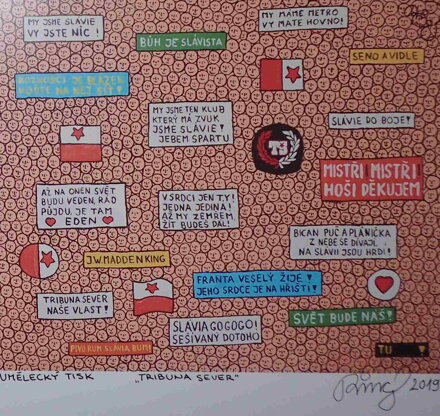 MY JSME SLAVIE
VY JSTE NIC !
MY MÁME METRO
VY MÁTE HOVNO!
BŮH JE SLÁVISTA
SENO A VIDLE
ROZHODČÍ JE BLÁZEN
MY JSME TEN KLUB
KTERÝ MÁ ZVUK
JSME SLAVIE!
JEBEM SPARTU
TS
SLÁVIE DO BOJE!
MISTŘI MISTŘI
HOŠI DĚKUJEM
AŽ NA ONEN SVĚT
BUDU VEDEN, RÁD
PŮJDU, JE TAM
EDEN
V SRDCI JEN TY!
JEDNA JEDINÁ!
AŽ MY ZEMŘEM,
ŽÍT BUDEŠ DÁL!
BICAN PUČ A PLÁNIČKA
Z NEBE SE DÍVAJÍ,
NA SLAVII JSOU HRDÍ!
J.W. MADDEN KING
FRANTA VESELÝ ŽIJE !
JEHO SRDCE JE NA HŘIŠTI!
TRIBUNA SEVER
NAŠE VLAST!
SLAVIA GOGOGO!
SEŠÍVANÝ DOTOHO
SVĚT BUDE NÁŠ!
PIVO RUM SLAVIA BUM!
TU !
UMĚLECKÝ TISK
„TRIBUNA SEVER"
2019